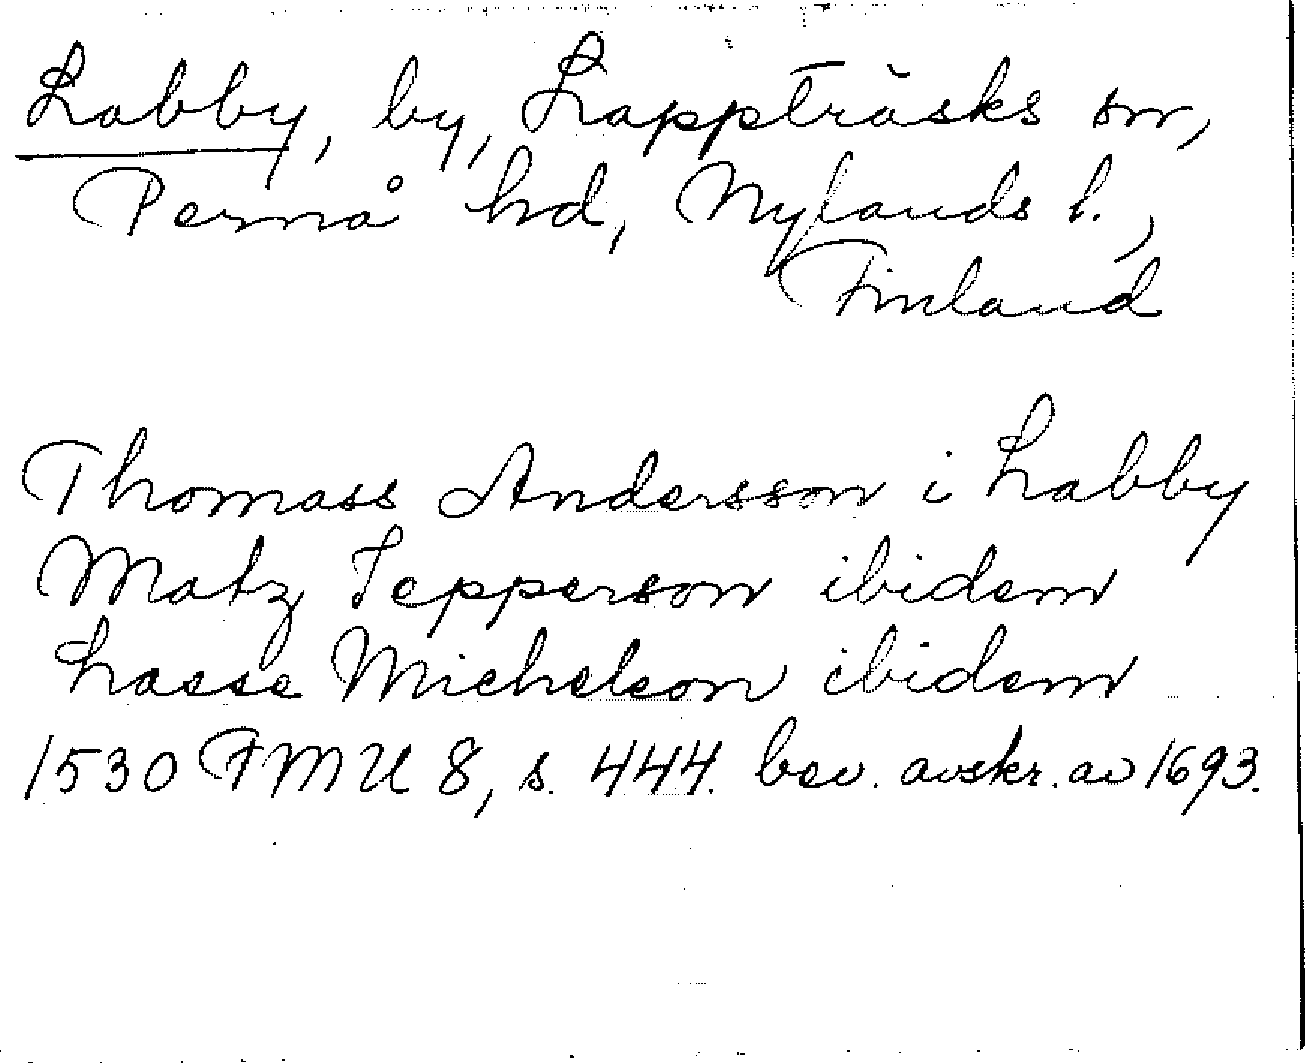 Labby, by, Lappträsks sn,
Pernå hd, Nylands l.,
Finland
Thomass Andersson i Labby
Matz Jepperson ibidem
Lasse Michelson ibidem
1530 FMU 8, s. 444. bev. avskr. av 1693.